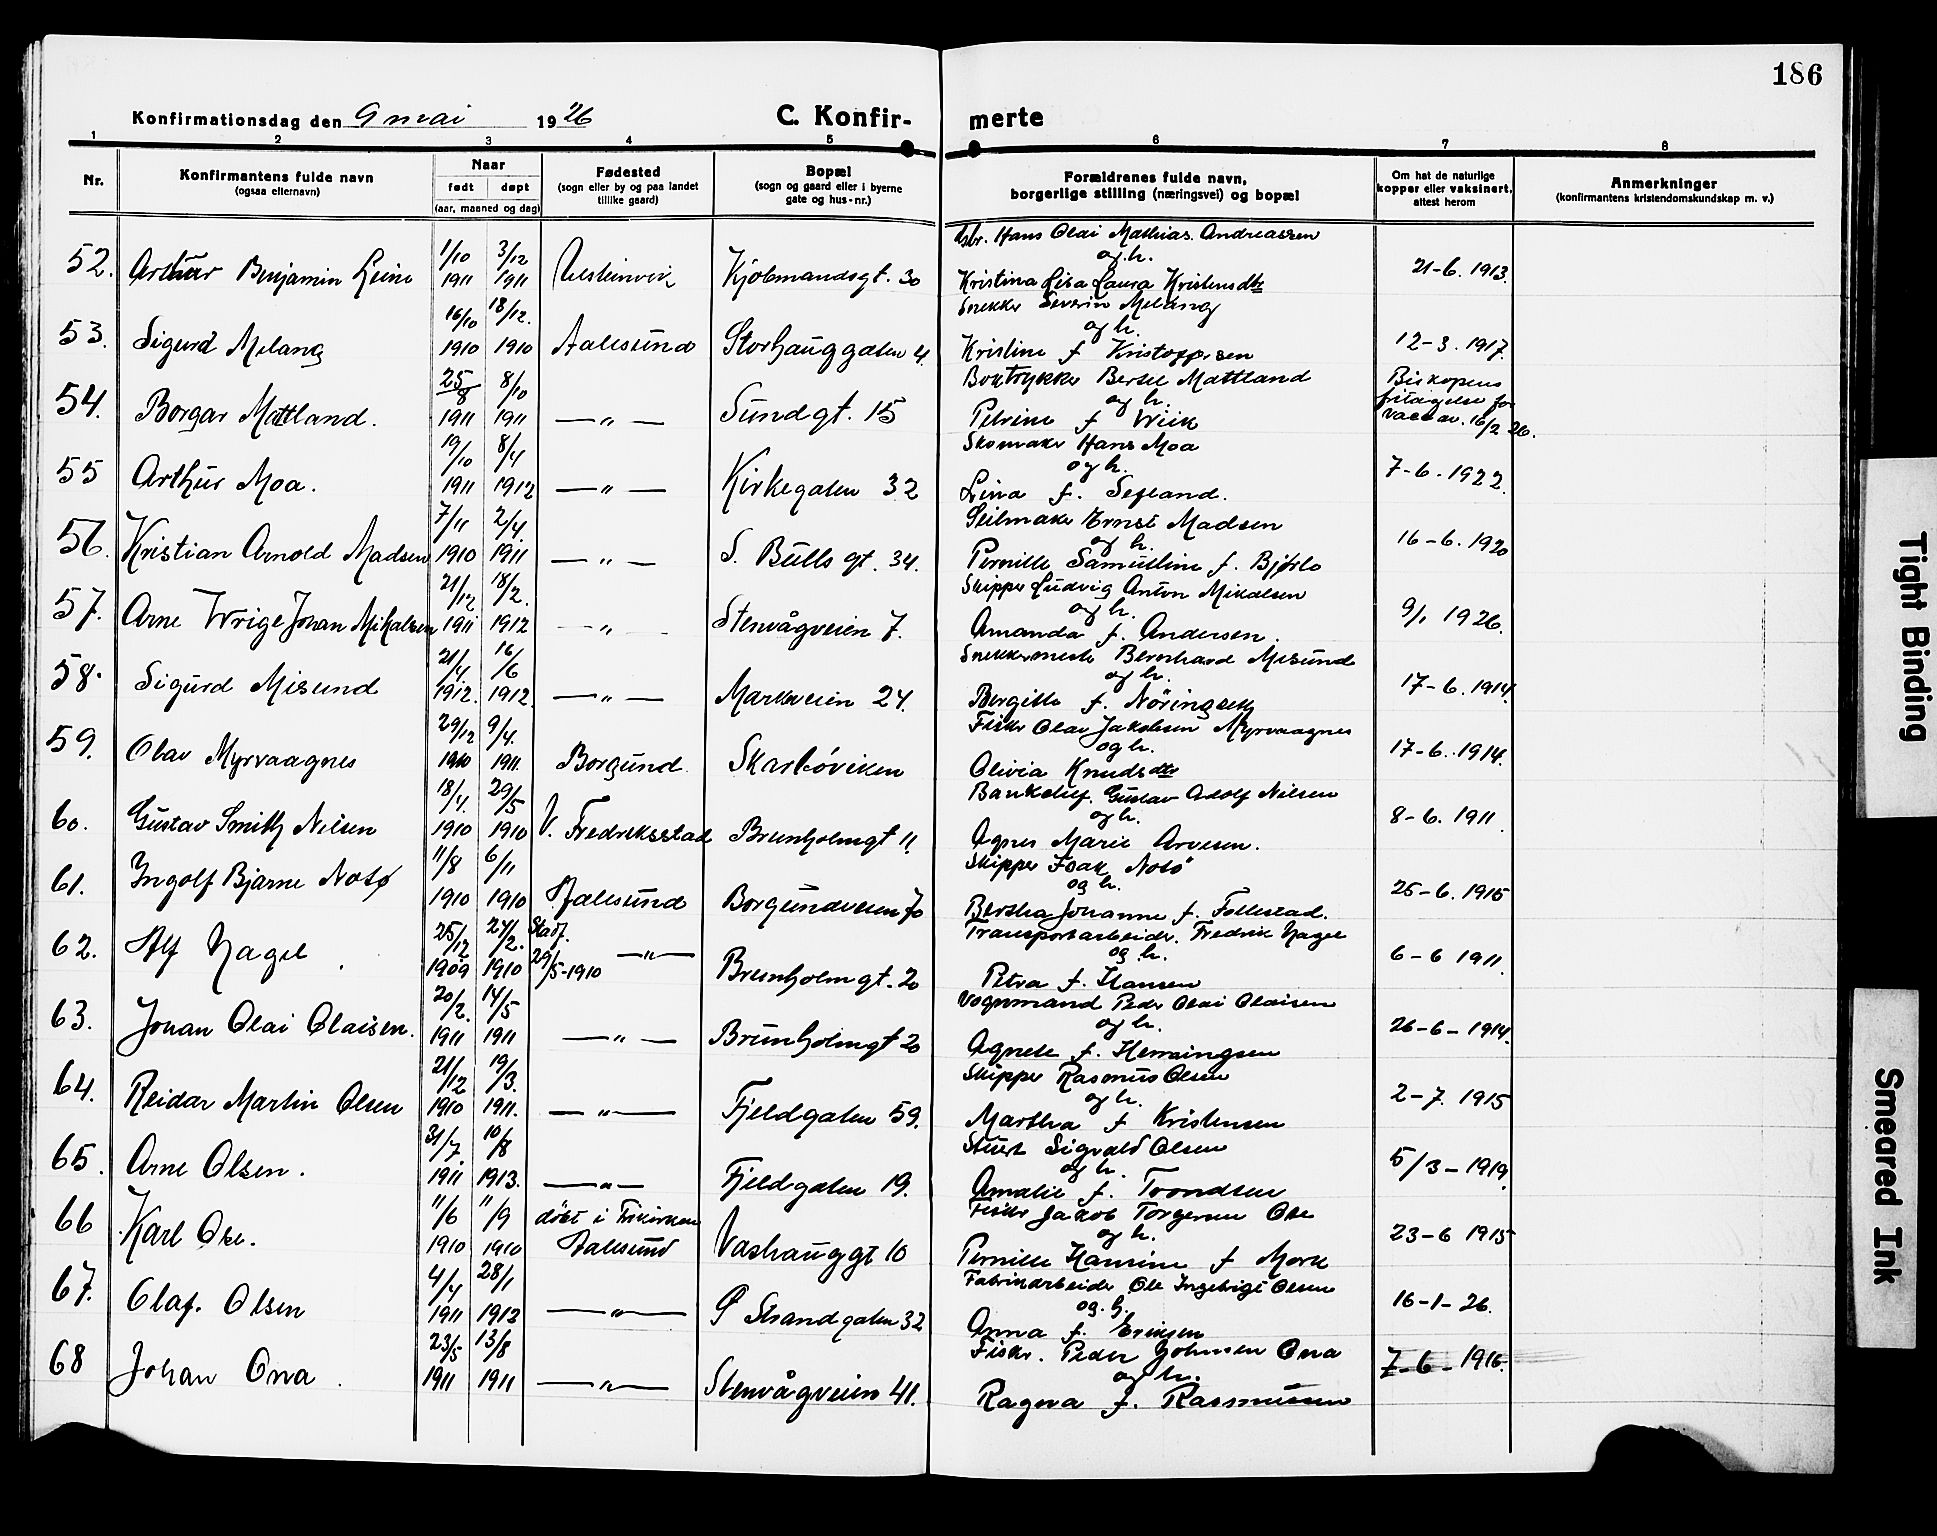 186
Konfirmationsdag den 9 mai 1926 C. Konfir- merte
1 2 3 4 5 6 7 8
Nr. Konfirmantens fulde navn (ogsaa efternavn) Naar født døpt (aar, maaned og dag) Fødested (sogn eller by og paa landet tillike gaard) Bopæl (sogn og gaard eller i byerne gate og hus-nr.) Forældrenes fulde navn, borgerlige stilling (næringsvei) og bopæl Om hat de naturlige kopper eller vaksinert, attest herom Anmerkninger (konfirmantens kristendomskundskap m. v.)
52. Arthur Benjamin Leine 1/10 1911 3/12 1911 Ulsteinvik Kjøbmandsgt. 30 Hans Olai Mathias Andreassen og h. Kristina Lisa Laura Kristensdtr 21-6. 1913.
53. Sigurd Melang 16/10 1910 18/12. 1910 Aalesund Storhauggaten 4. Snekker Severin Melang og h. Kristine f Kristoffersen 12-3. 1917.
54. Borgar Mattland. 25/8 1911 8/10 1911 —"— Sundgt. 15 Boktrykker Bertel Mattland og h. Petrine f Wiik Biskopens fritagelse for vaccav. 16/2 26.
55 Arthur Moa. 19/10 1911 8/4 1912 —"— Kirkegaten 32 Skomaker Hans Moa og h. Lina f. Sefland. 7-6. 1922.
56. Kristian Arnold Madsen 7/11 1910 2/4. 1911 —"— S. Bulls gt. 34. Seilmaker Ernst Madsen og h. Pernille Samueline f. Bjørlo 16-6. 1920
57. Arne Wrige Johan Mikalsen 21/12 1911 18/2. 1912 —"— Stenvågveien 7. Skipper Ludvig Anton Mikalsen og h. Amanda f. Andersen. 9/1 1926.
58. Sigurd Misund 21/4 1912. 16/6 1912. —"— Markveien 24. Snekkermester Bernhard Misund og h. Bergitte f. Nöringseth 17-6. 1914.
59. Olav Myrvaagnes 29/12 1910 9/4. 1911. Borgund Skarbøviken Fisker Olav Jakobsen Myrvaagnes og h. Olivia Knudsdtr 17-6. 1914.
60. Gustav Smith Nilsen 18/4. 1910 29/5 1910 V. Fredriksstad Brunholmgt 11. Bankchef. Gustav Adolf Nilsen og h. Agnes Marie Arvesen. 8-6. 1911
61. Ingolf Bjarne Notø 11/8 1910 6/11 1910 Aalesund Borgundveien 70 Skipper Isak Notö og h. Bertha Johanne f. Follestad. 25-6. 1915
62. Alf Nagel 25/12 1909 27/2. 1910 Stadf. 29/5-1910 —"— Brunholmgt. 20 Transportarbeider. Fredrik Nagel og h. Petra f. Hansen 6-6 1911.
63. Johan Olai Olaisen. 20/2. 1911 14/5 1911 —"— Brunholmgt 20 Vognmand Peder Olai Olaisen og h. Agnete f. Hemmingsen 26-6-1914.
64. Reidar Martin Olsen 21/12 1910 19/3. 1911. —"— Fjeldgaten 59. Skipper Rasmus Olsen og h. Martha f Kristensen 2-7. 1915
65. Arne Olsen. 31/7. 1911 10/8 1913. —"— Fjeldgaten 19. Stuert Sigvald Olsen og h. Amalie f. Trondsen 5/3-1919.
66 Karl Ose. 11/6 1910 11/9 1910 døbt i Frikirken Aalesund Vashauggt 10 Fisker Jakob Torgersen Ose og h. Pernille Hansine f Mork 23-6 1915
67. Olaf. Olsen 4/4 1911 28/1 1912 —"— Ø Strandgaten 32 Fabrikarbeider Ole Ingebrigt Olsen og. h. Anna f. Eriksen 16-1-26.
68 Johan Ona. 23/5 1911 13/8 1911 —"— Stenvågveien 41. Fisker. Peder Johnsen Ona og h. Ragna f. Rasmussen 7-6-1916.
Tight Binding
Smeared Ink